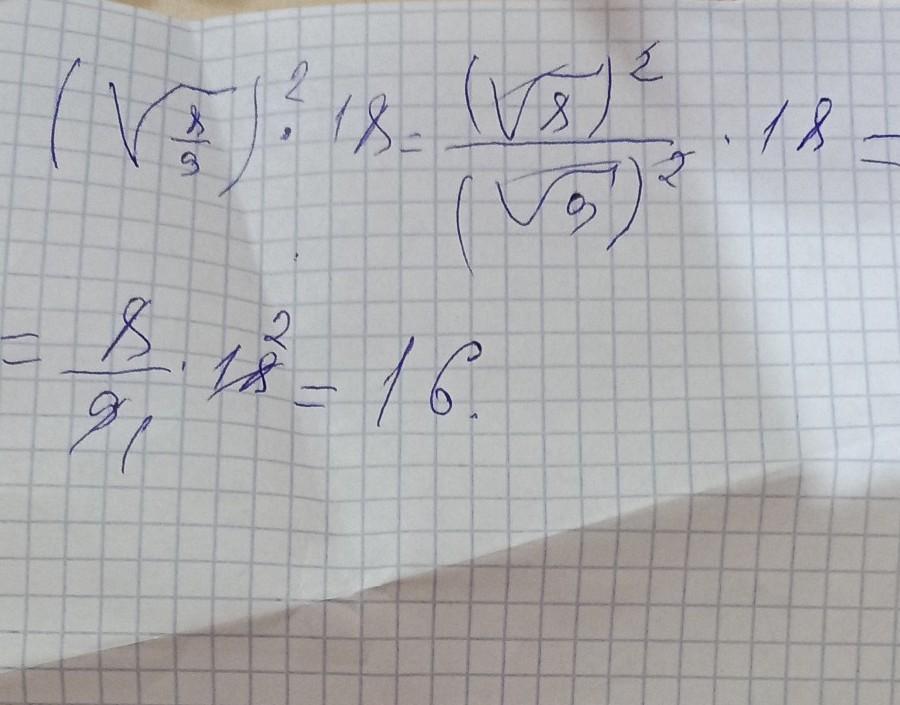 (√(8/9))² · 18 = (√8)²/(√9)² · 18 =
= 8/9 1 · 18 2 = 16.